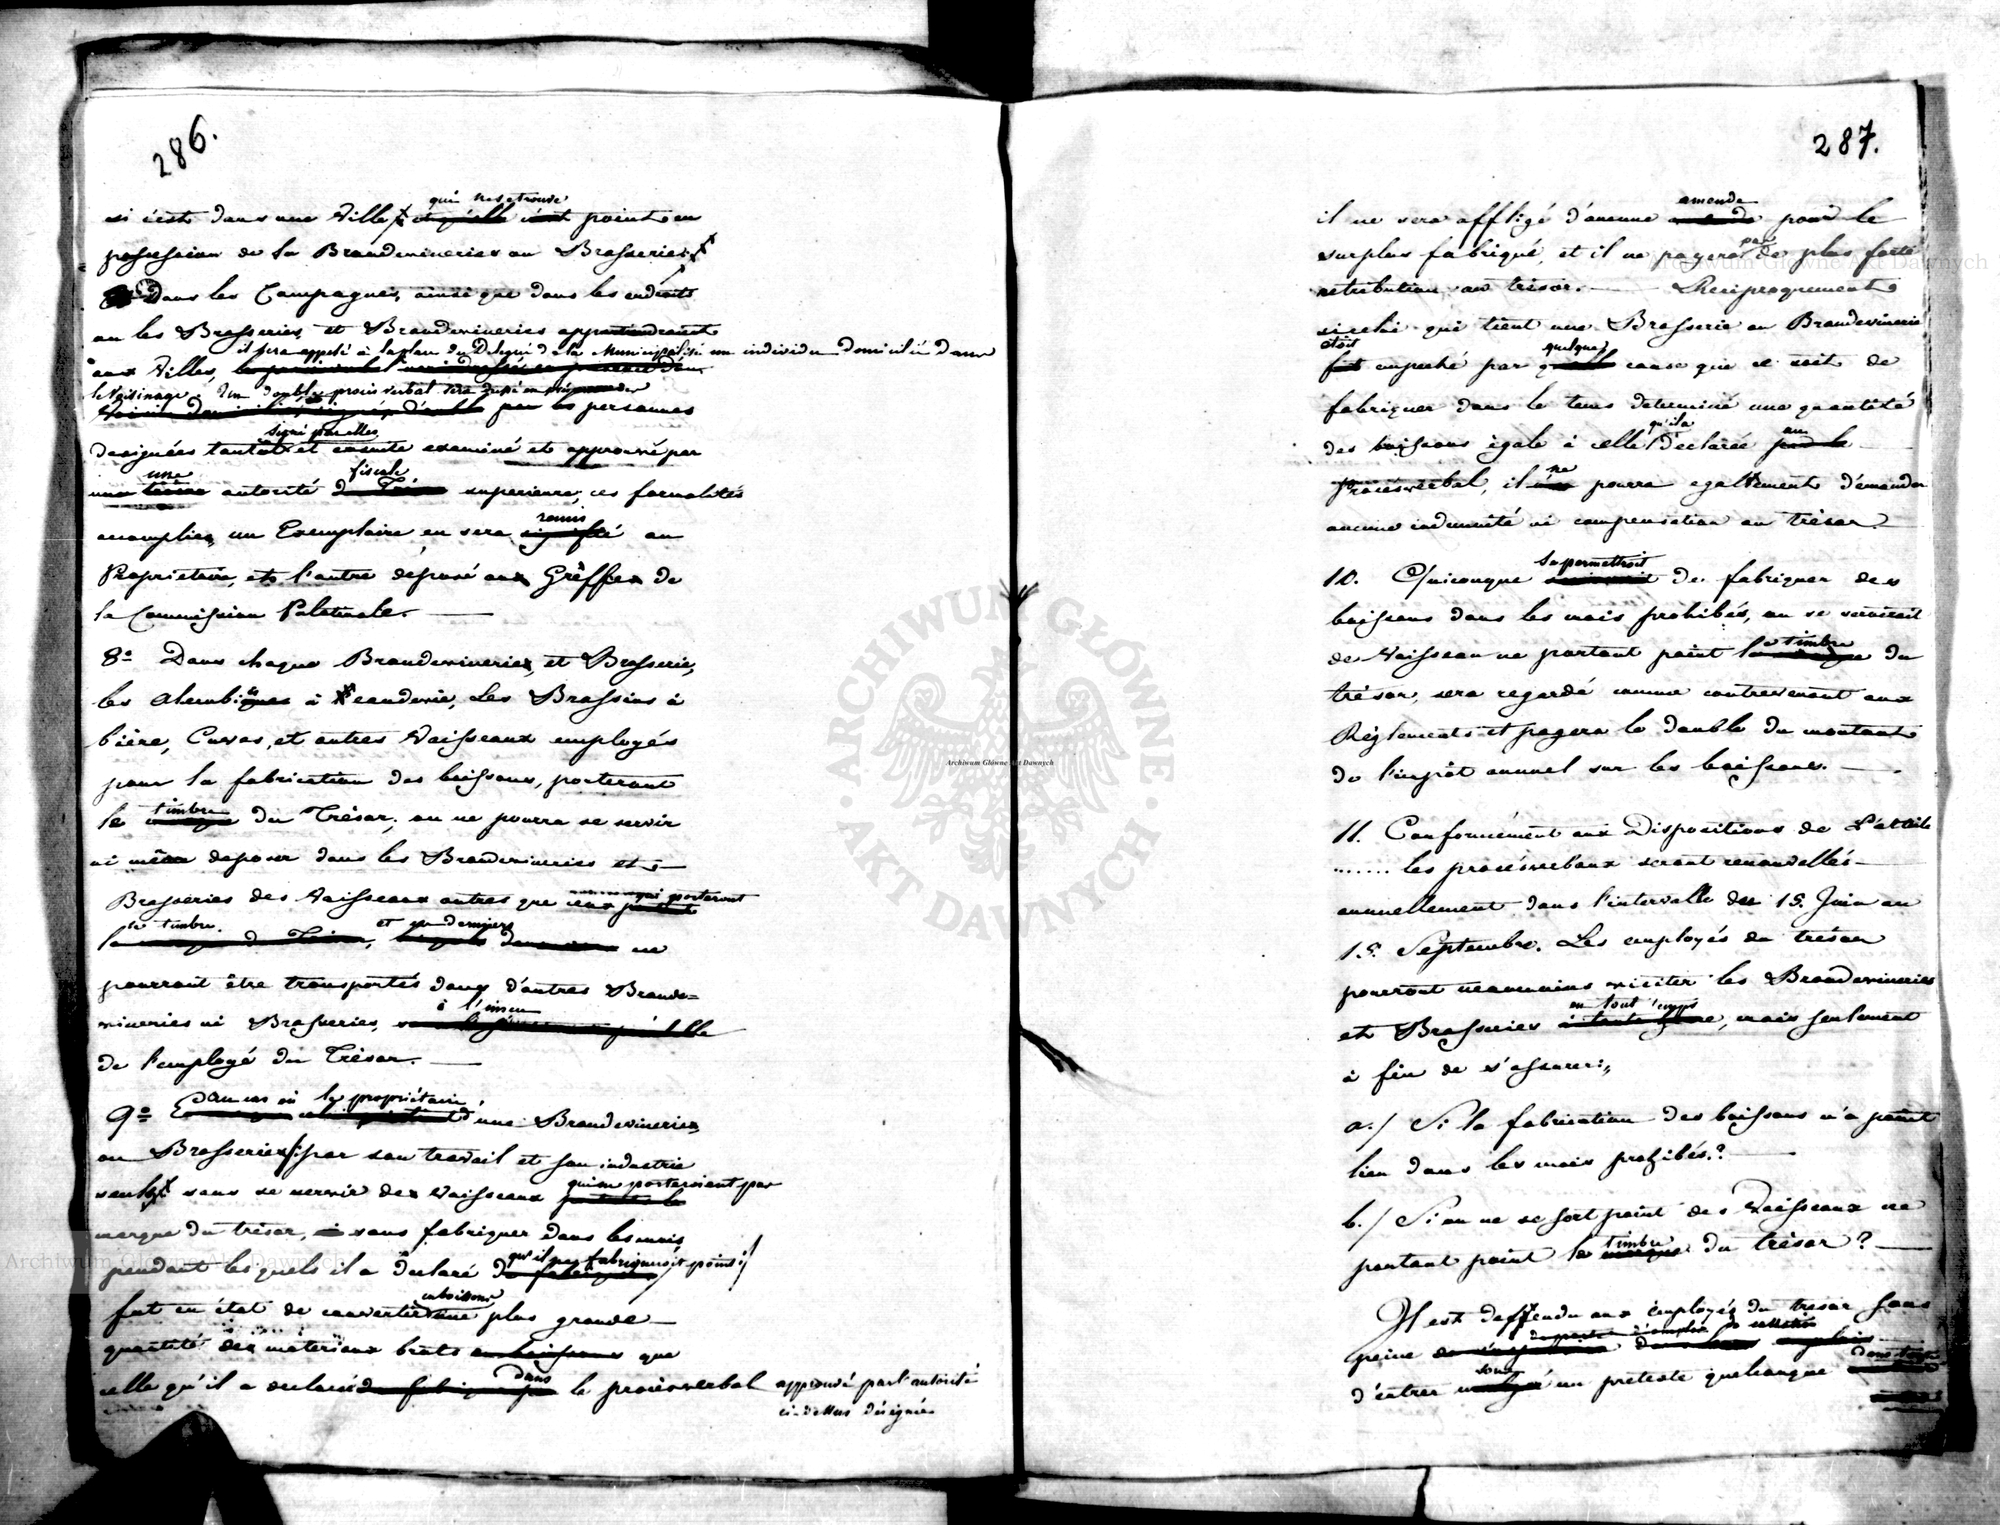 286.
si c'est dans une Ville qui ne se trouve point en
possession de la Brandevineries ou Brasseries
Dans les Campagnes, ainsi que dans les endroits
ou les Brasseries et Brandevineries appartiendraient
il sera appelé à la place du Délegué de la Municipalité un individu domicilié dans
aux Villes,
le Voisinage. Un double procès verbal sera dressé
par les personnes
signé par elles
designées tantôt et ensuite examiné et approuvé par
une autorité fiscale superieure, ces formalités
accomplies, un Exemplaire en sera remis au
Proprietaire, et l'autre déposé aux Greffes de
la Commission Palatinale.
8º Dans chaque Brandevinerie, et Brasserie,
les alembics à eaudevie, Les Brassins à
bière, Cuves, et autres Vaisseaux employés
pour la fabrication des boissons, porteront
le timbre du Trésor; on ne pourra se servir
ni même deposer dans les Brandevineries et
Brasseries des Vaisseaux autres que ceux qui porteront
le timbre. et ces derniers ne
pourront être transportés dans d'autres Brande=
vineries ni Brasseries, à l'insçu
de l'employé du Trésor.
9º Dans le cas où le propriétaire d'une Brandevinerie
ou Brasserie par son travail et son industrie
seuls sans se servir des Vaisseaux qui ne porteroient pas
marque du trésor, sans fabriquer dans les mois
pendant lesquels il a declaré qu'il ne fabriqueroit point
fut en état de convertir en boissons une plus grande
quantité des matériaux bruts que
celle qu'il a declaré dans le procèsverbal approuvé par l'autorité
ci-dessus désignée
287.
il ne sera affligé d'aucune amende pour le
surplus fabriqué, et il ne payera pas de plus forte
retribution au trésor. Reciproquement
si celui qui tient une Brasserie ou Brandevinerie
étoit empeché par quelque cause que ce soit de
fabriquer dans le tems determiné une quantité
des boissons égale à celle qu'il a declarée au
Procèsverbal, il ne pourra egallement démander
aucune indemnité ni compensation au trésor.
10. Quiconque se permettroit de fabriquer des
boissons dans les mois prohibés, ou se serviroit
de Vaisseau ne portant point le timbre du
trésor, sera regardé comme contrevenant aux
Réglements et payera le double du montant
de l'impôt annuel sur les boissons.
11. Conformément aux Dispositions de L'article
....... les procèsverbaux seront renouvellés
annuellement dans l'intervalle du 15. Juin au
15. Septembre. Les employés du trésor
pourront neanmoins visiter les Brandevineries
et Brasseries en tout temps, mais seulement
à fin de s'assurer:,
a./ Si la fabrication des boissons n'a point
lieu dans les mois prohibés.?
b./ Si on ne se sert point des Vaisseaux ne
portant point le timbre du trésor?
Il est deffendu aux employés du tresor sous
peine
d'entrer sous un pretexte quelconque